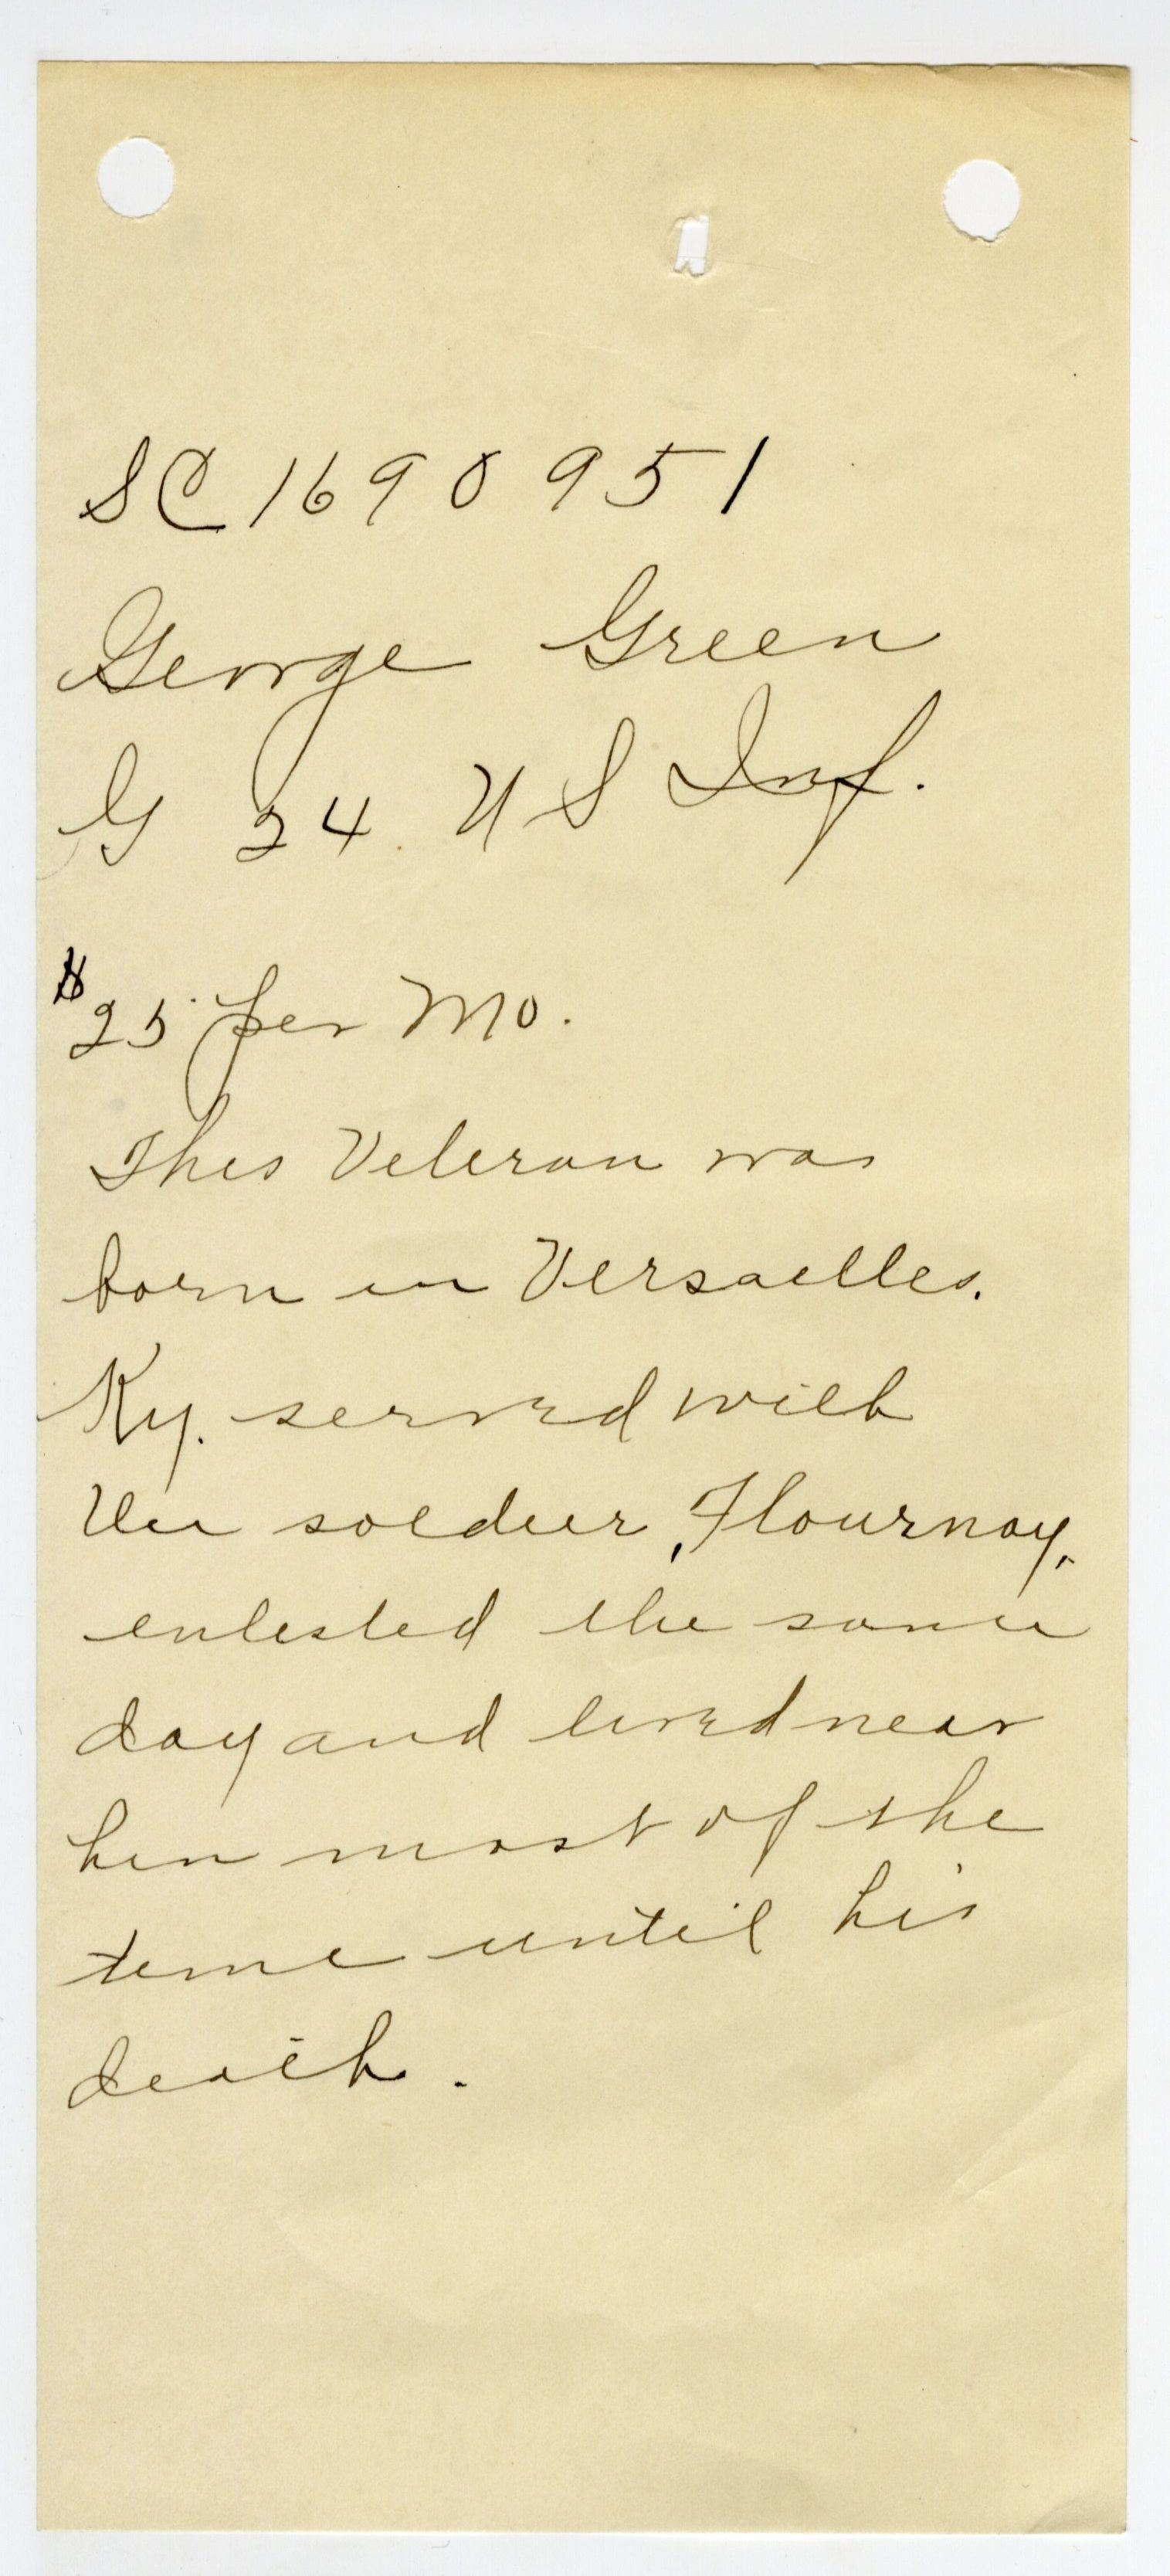 SC 1690951
George Green
G 24 U S Inf.
$25 per Mo.
This Veteran was
born in Versailles.
Ky. served with
the soldier, Flournoy,
enlisted the same
day and lived near
him most of the
time until his
death.